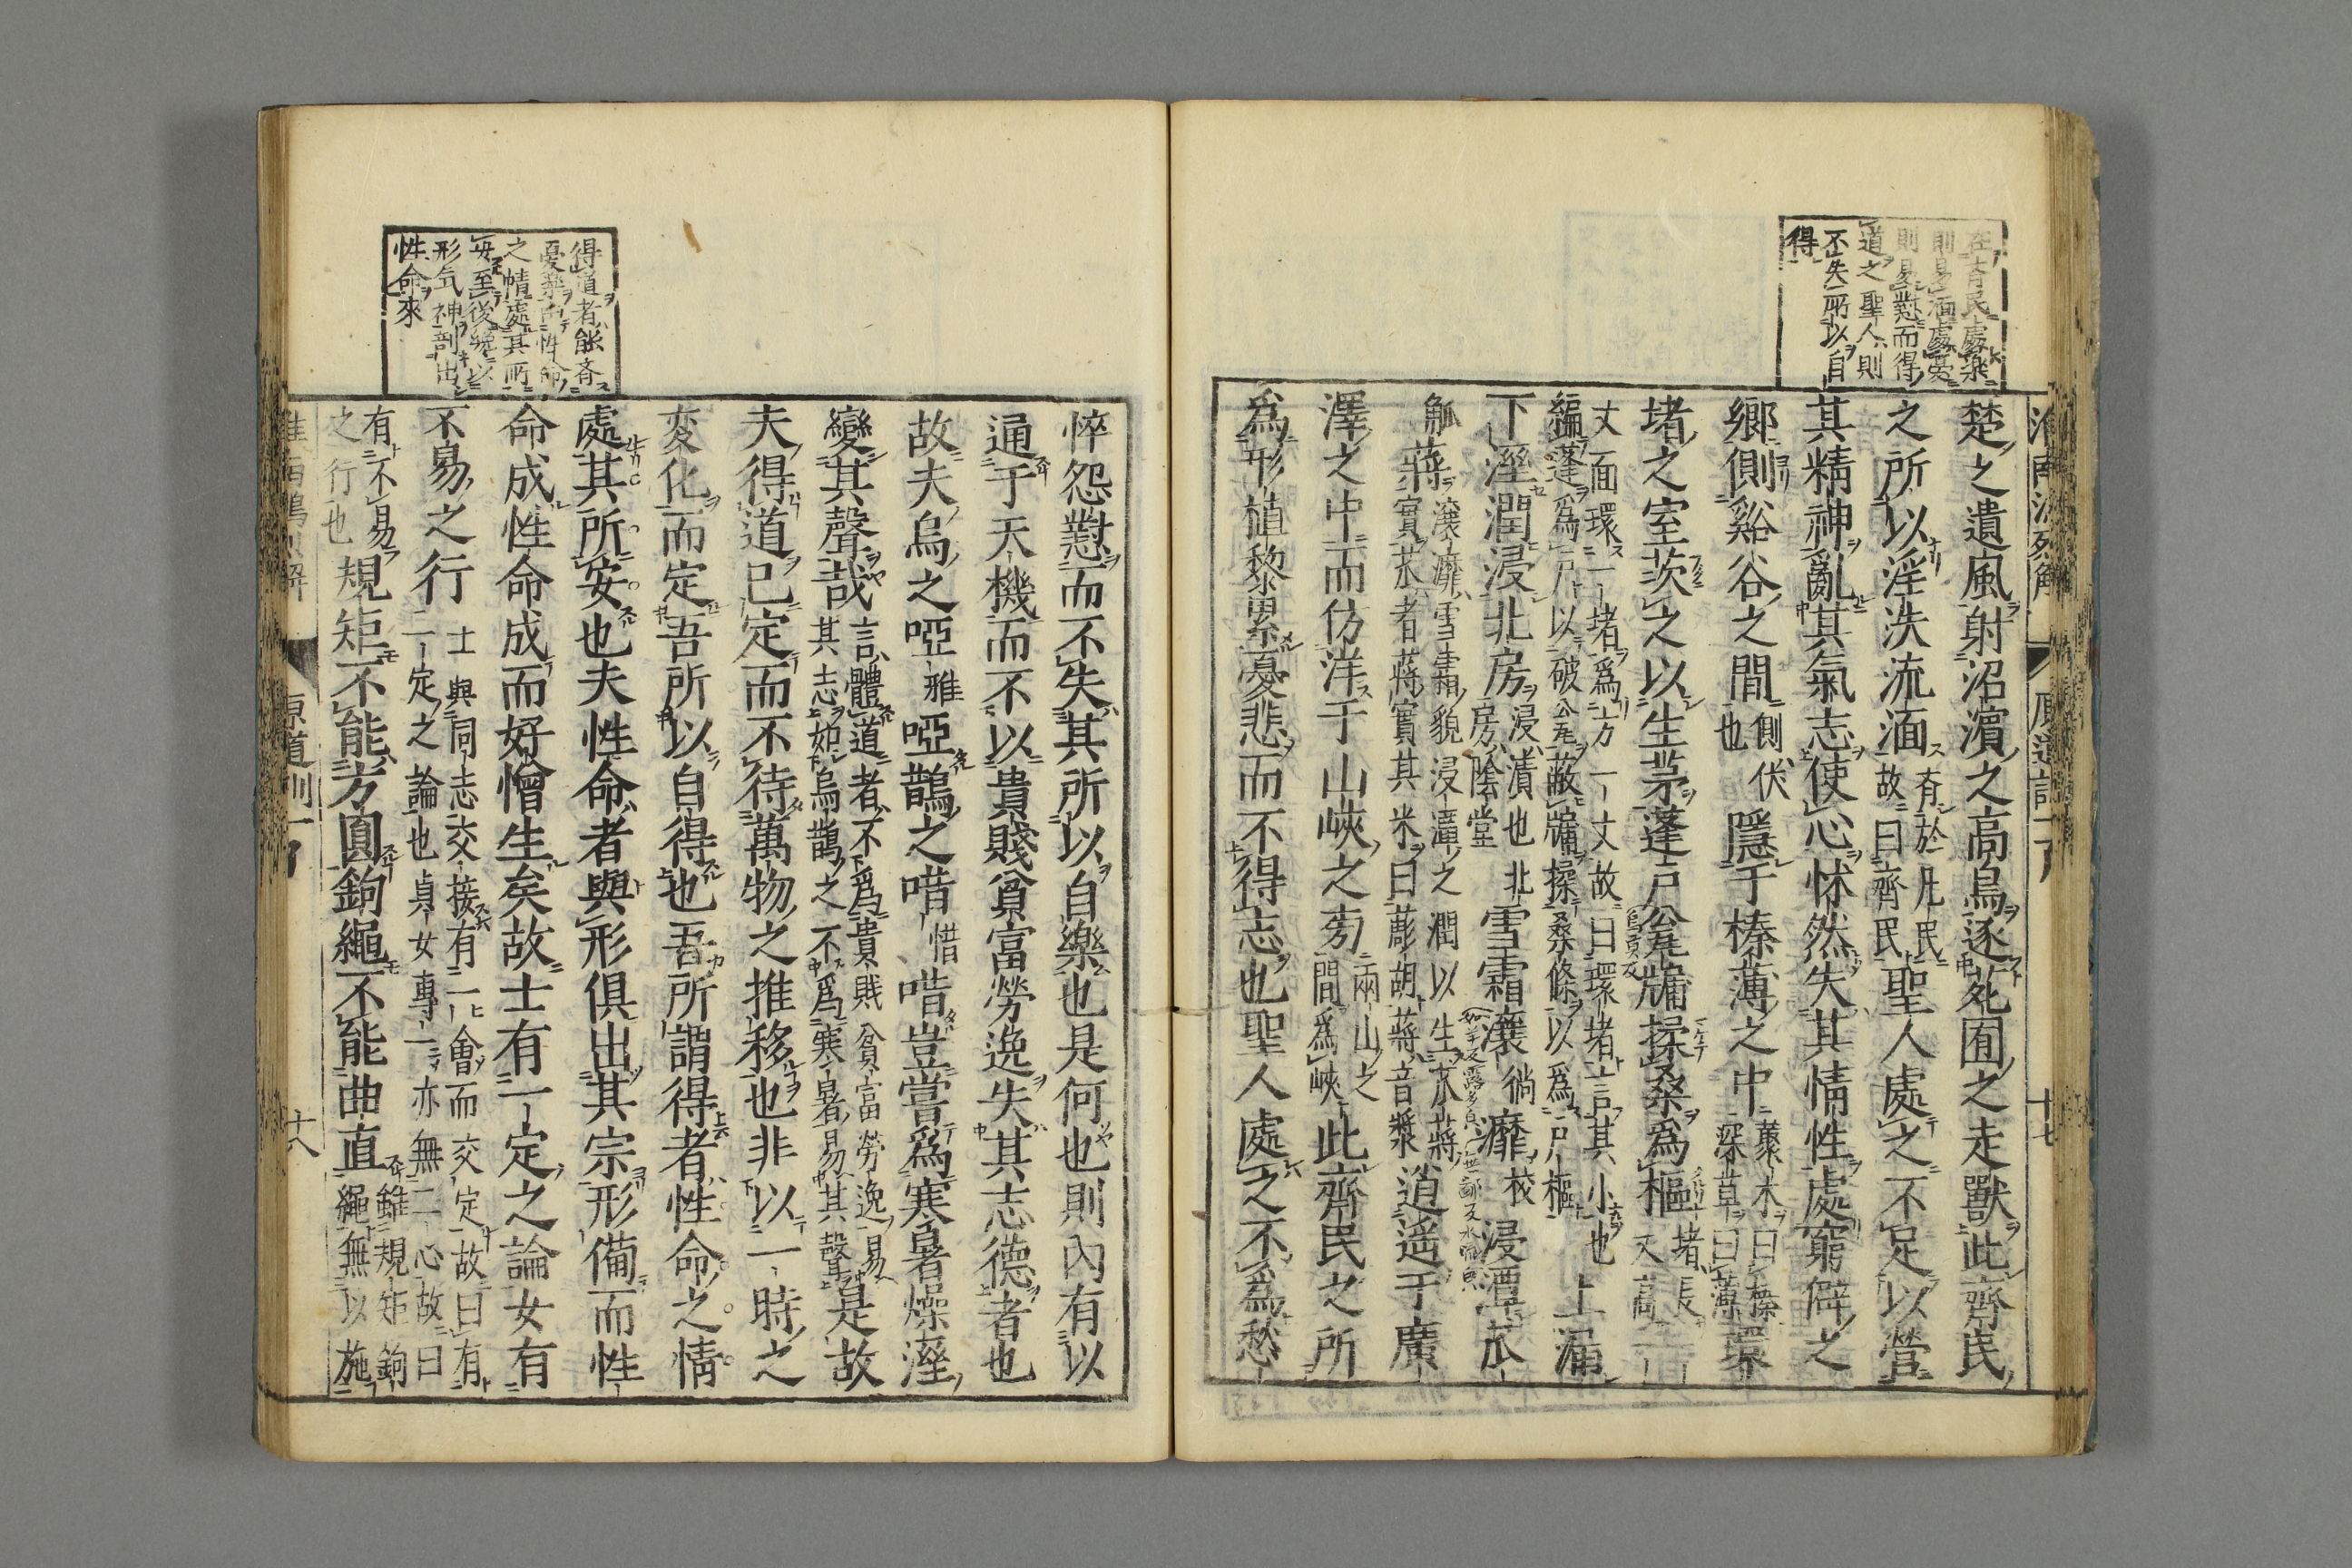 在齊民處樂
則易湎處憂
則易懟而得
道之聖人則
不失所以自
得
楚之遺風射沼濱之高鳥逐苑囿之走獸此齊民
之所以淫泆流湎有於凡民故曰齊民聖人處之不足以營
其精神亂其氣志使心怵然失其情性處窮僻之
鄉側谿谷之間側伏也隱于榛薄之中藂木曰榛深草曰薄環
堵之室茨之以生茅蓬戶瓮牖揉桑爲樞堵長丈高一
丈面環一堵爲方一丈故曰環堵言其小也
編蓬爲戶以破瓮蔽牖揉桑條以爲戶樞上漏
下溼潤浸北房浸漬也北房陰堂雪霜瀼徜靡校浸潭苽
觚蔣瀼靡雪霜貌浸潭之潤以生苽蔣實苽者蔣實其米曰彫胡蔣音漿逍遥于廣
澤之中而仿洋于山峽之旁兩山之間爲峽此齊民之所
爲形植黎累憂悲而不得志也聖人處之不爲愁
淮南鴻烈解 原道訓一 十七
得道者能齊
憂樂而性命
之情處其所
安至後纔以
形气神剖出
性命來
悴怨懟而不失其所以自樂也是何也則内有以
通于天機而不以貴賤貧富勞逸失其志德者也
故夫烏之啞雅啞鵲之唶惜唶豈嘗爲寒暑燥溼
變其聲哉言體道者不爲貴賤貧富勞逸易其志如烏鵲之不爲寒暑易其聲是故
夫得道已定而不待萬物之推移也非以一時之
変化而定吾所以自得也吾所謂得者性命之情
處其所安也夫性命者與形俱出其宗形備而性
命成性命成而好憎生矣故士有一定之論女有
不易之行士與同志交接有二會而交定故曰有一定之論也貞女專一亦無二心故曰
有不易之行也規矩不能方圓鉤繩不能曲直雖規矩鉤繩無以施
淮南鴻烈解 原道訓一 十八